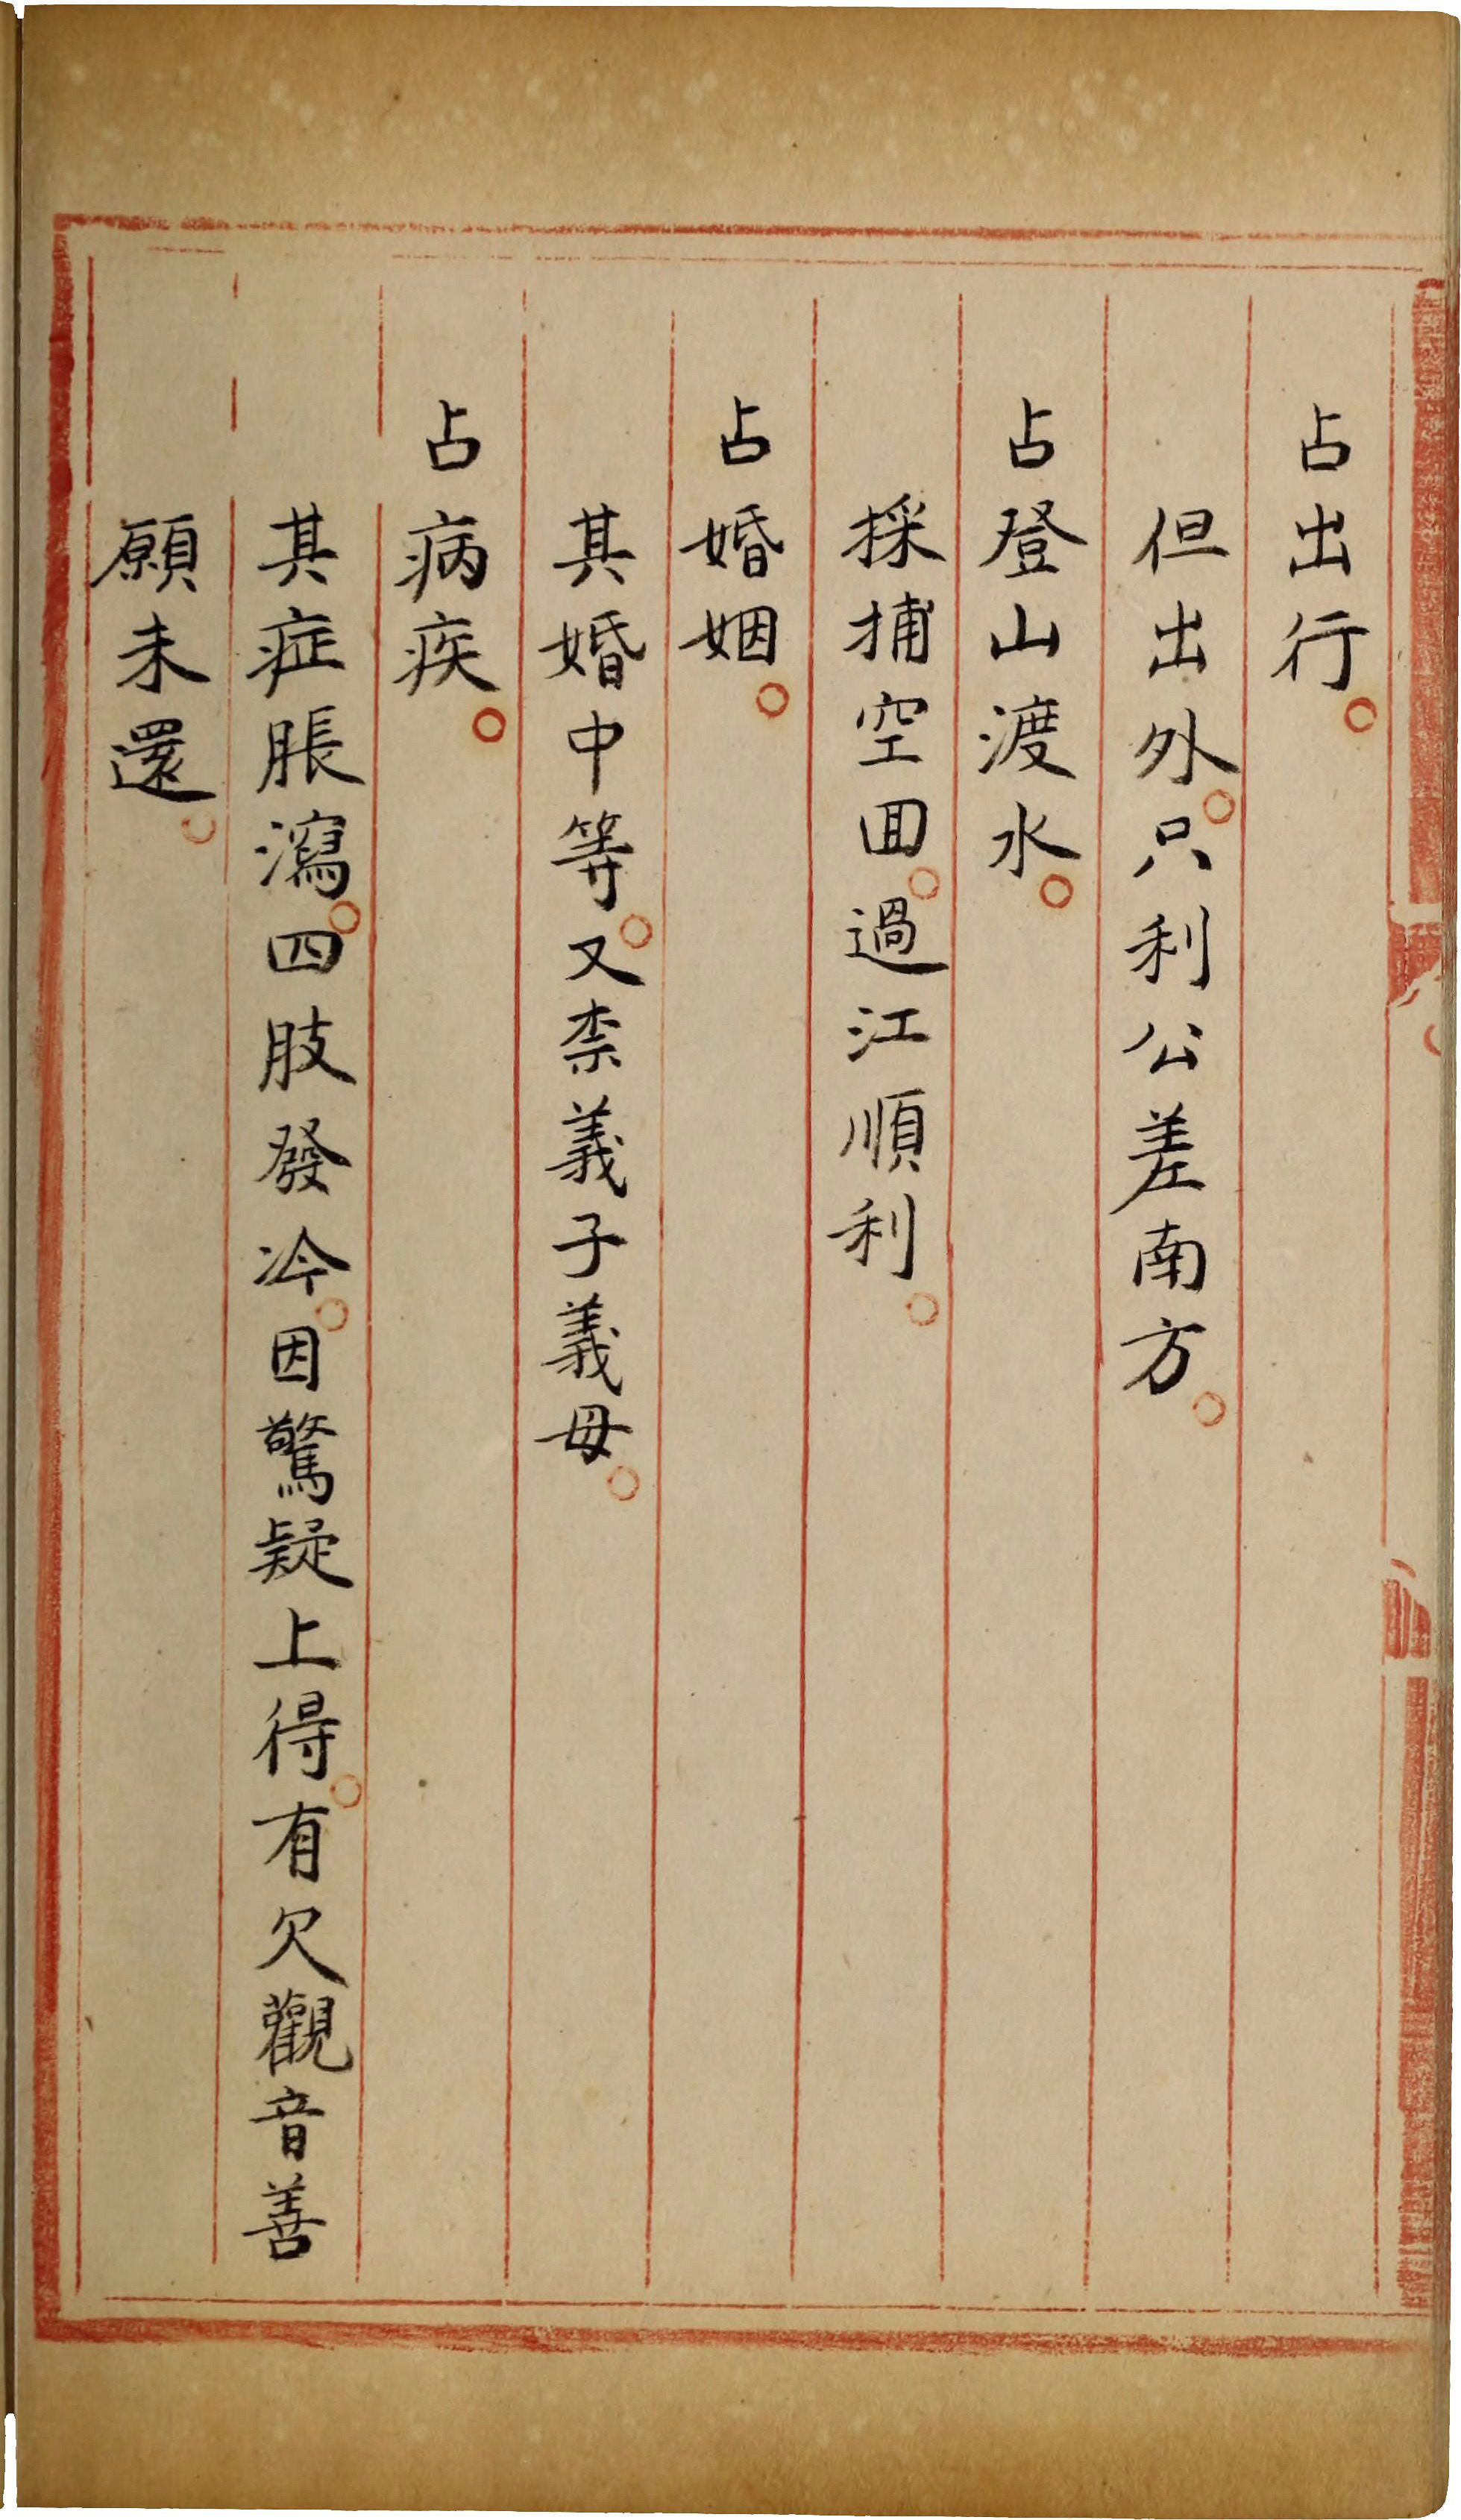 占出行。
但出外。只利公差南方。
占登山渡水。
採捕空回。過江順利。
占婚姻。
其婚中等。又柰義子義母。
占病疾。
其症脹瀉。四肢發冷。因驚疑上得。有欠觀音善
願未還。